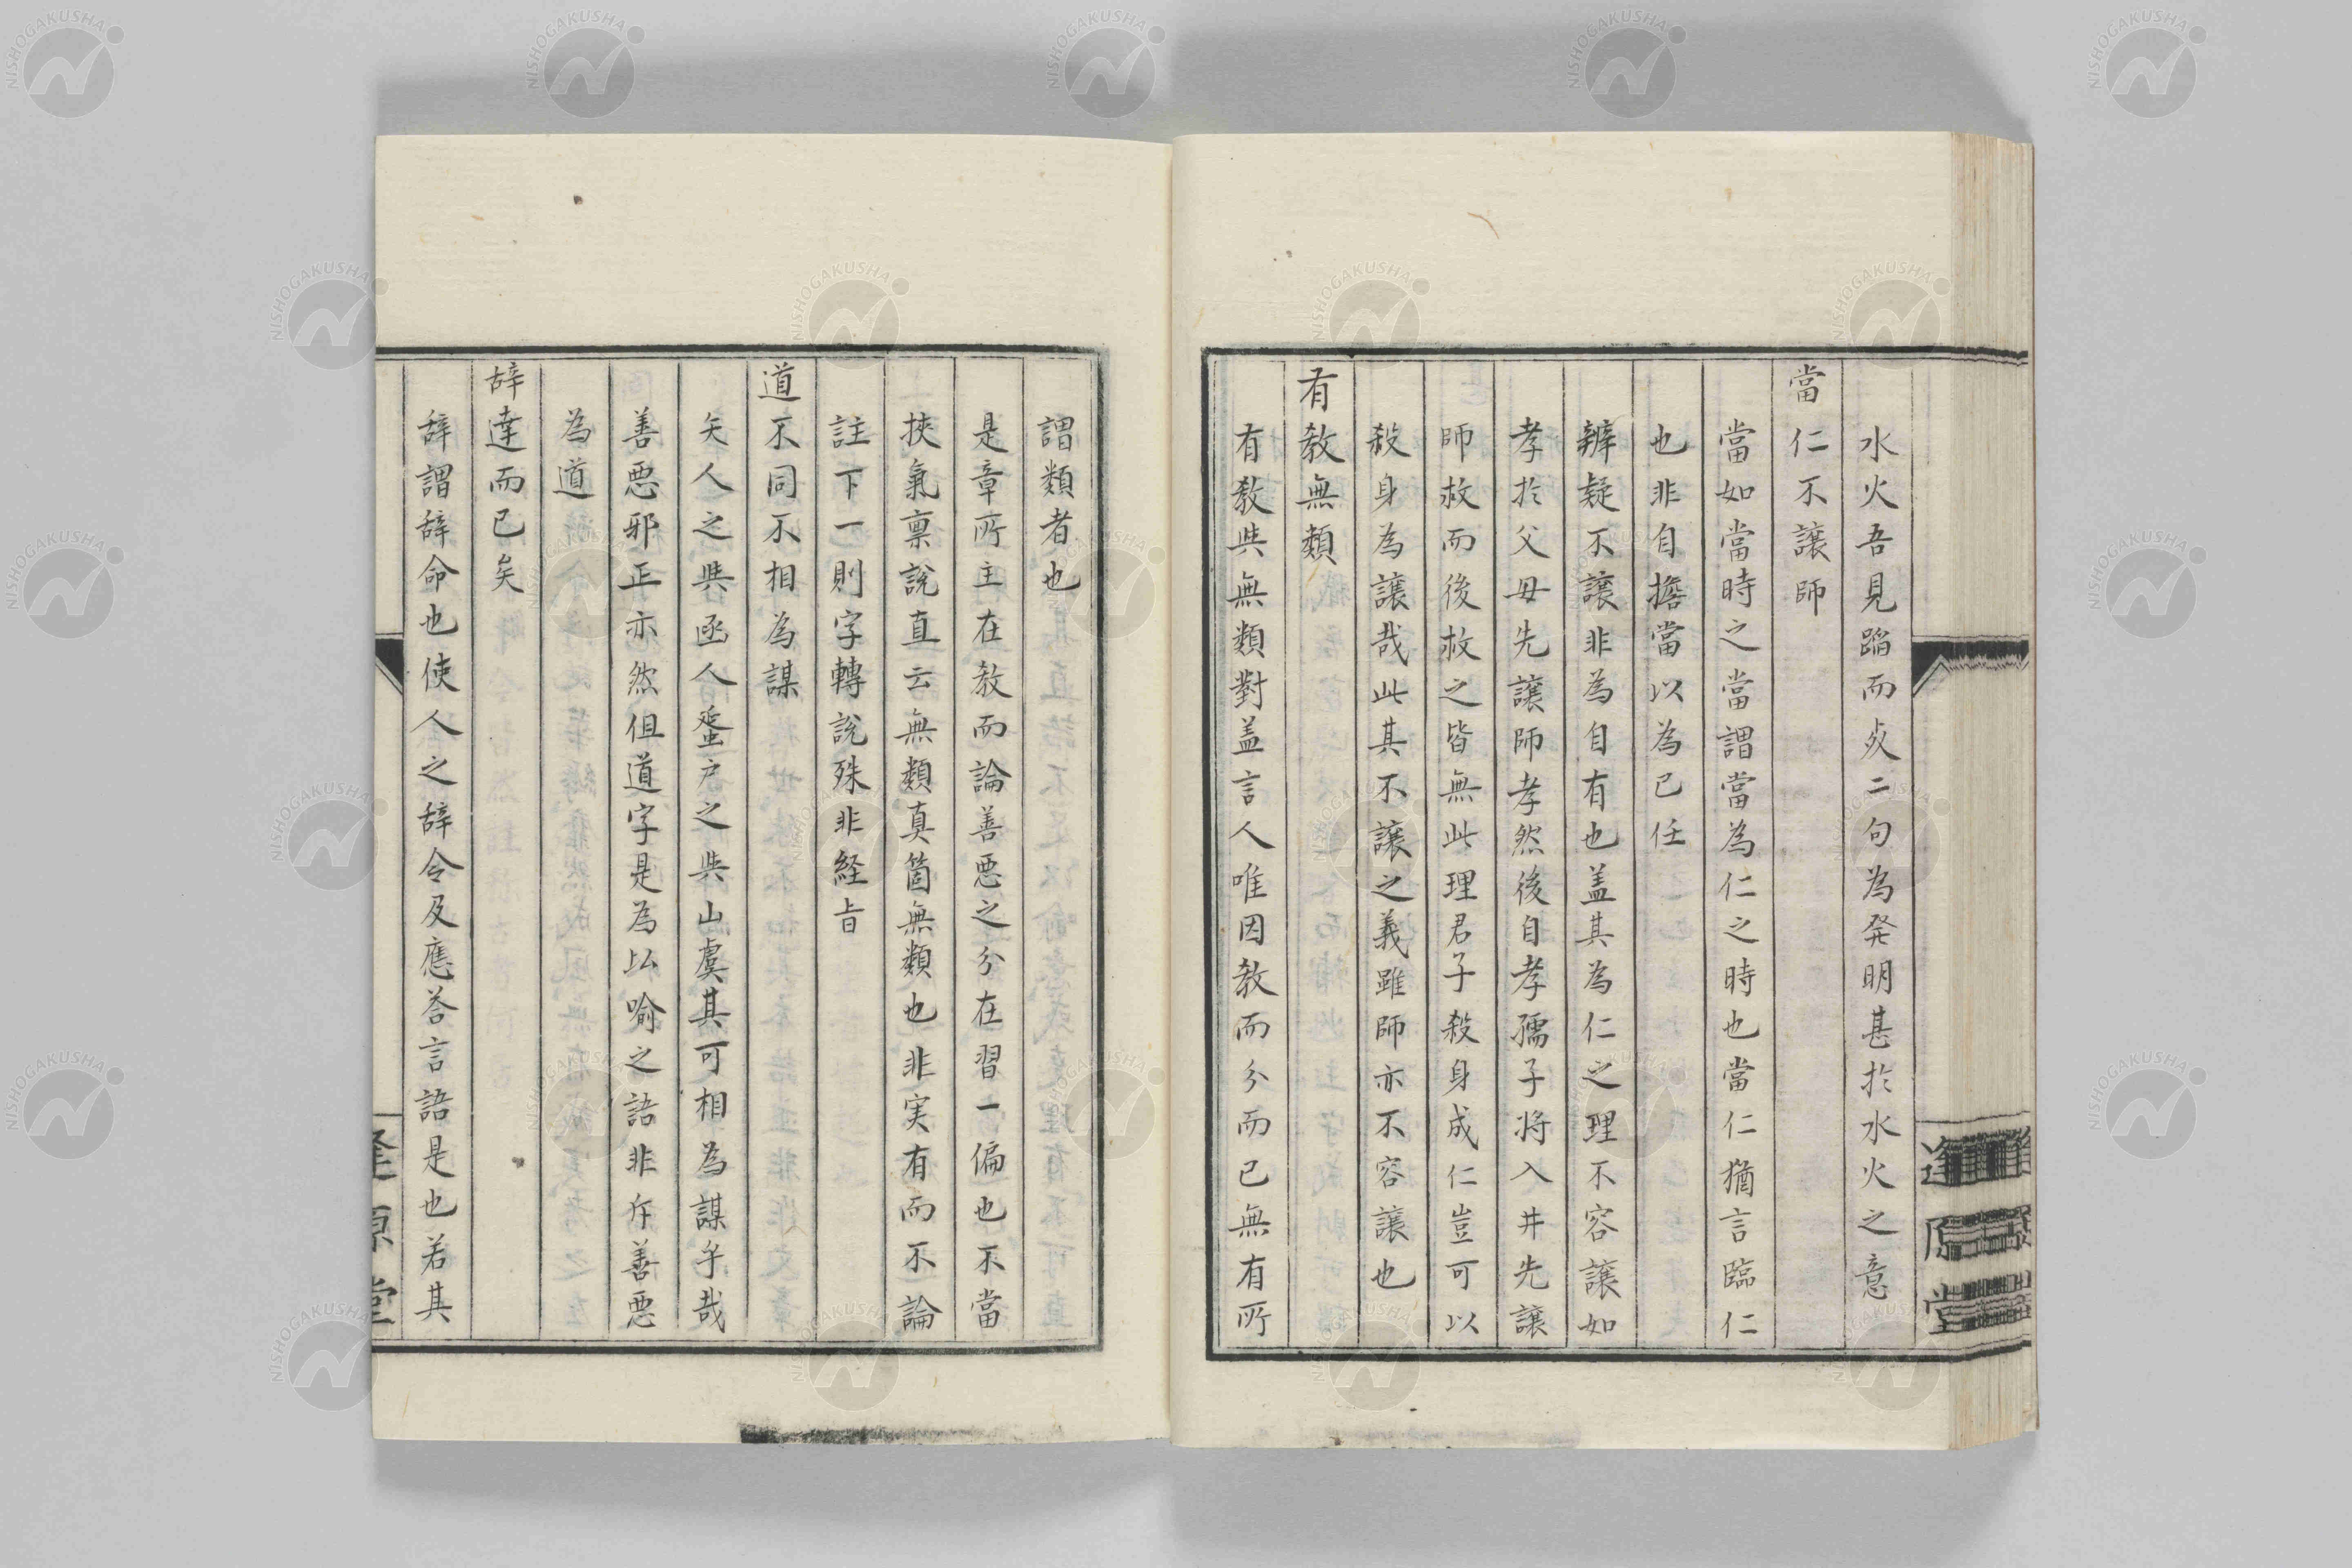 水火吾見蹈而死二句為発明甚於水火之意
當仁不讓師
當如當時之當謂當為仁之時也當仁猶言臨仁
也非自擔當以為已任
辨疑不讓非為自有也盖其為仁之理不容讓如
孝於父母先讓師孝然後自孝孺子将入井先讓
師救而後救之皆無此理君子殺身成仁豈可以
殺身為讓哉此其不讓之義雖師亦不容讓也
有教無類
有教與無類對盖言人唯因教而分而已無有所
逢原堂
謂類者也
是章所主在教而論善悪之分在習一偏也不當
挾氣稟說直云無類真箇無類也非実有而不論
註下一則字轉說殊非経旨
道不同不相為謀
矢人之與函人蜑戸之與山虞其可相為謀乎哉
善悪邪正亦然但道字是為以喻之語非斥善悪
為道
辞達而已矣
辞謂辞命也使人之辞令及應荅言語是也若其
逢原堂
NISHOGAKUSHA